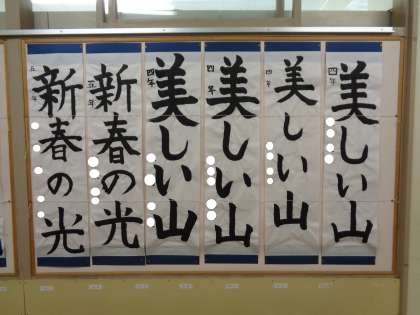 美しい山
四年
美しい山
四年
美しい山
四年
美しい山
四年
新春の光
五年
新春の光
五年